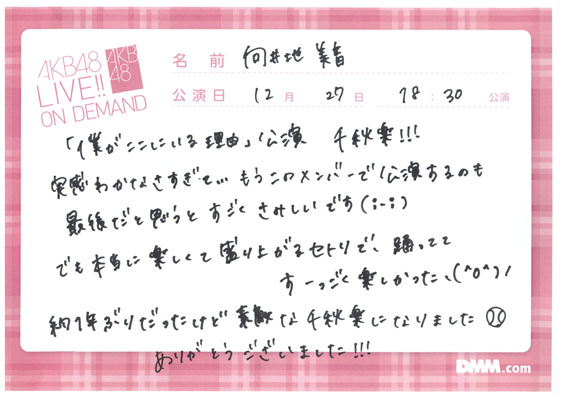 AKB48
LIVE!!
ON DEMAND
AKB
48
名前 向井地 美音
公演日 12月 27日 18:30 公演
「僕がここにいる理由」公演 千秋楽!!!
実感わかなさすぎて… もうこのメンバーで公演するのも
最後だと思うと すごく さみしいです(;-;)
でも本当に楽しくて盛り上がるセトリで、踊ってて
すーっごく楽しかった、(^o^)/
約1年ぶりだったけど 素敵な千秋楽になりました
ありがとうございました!!!
DMM.com